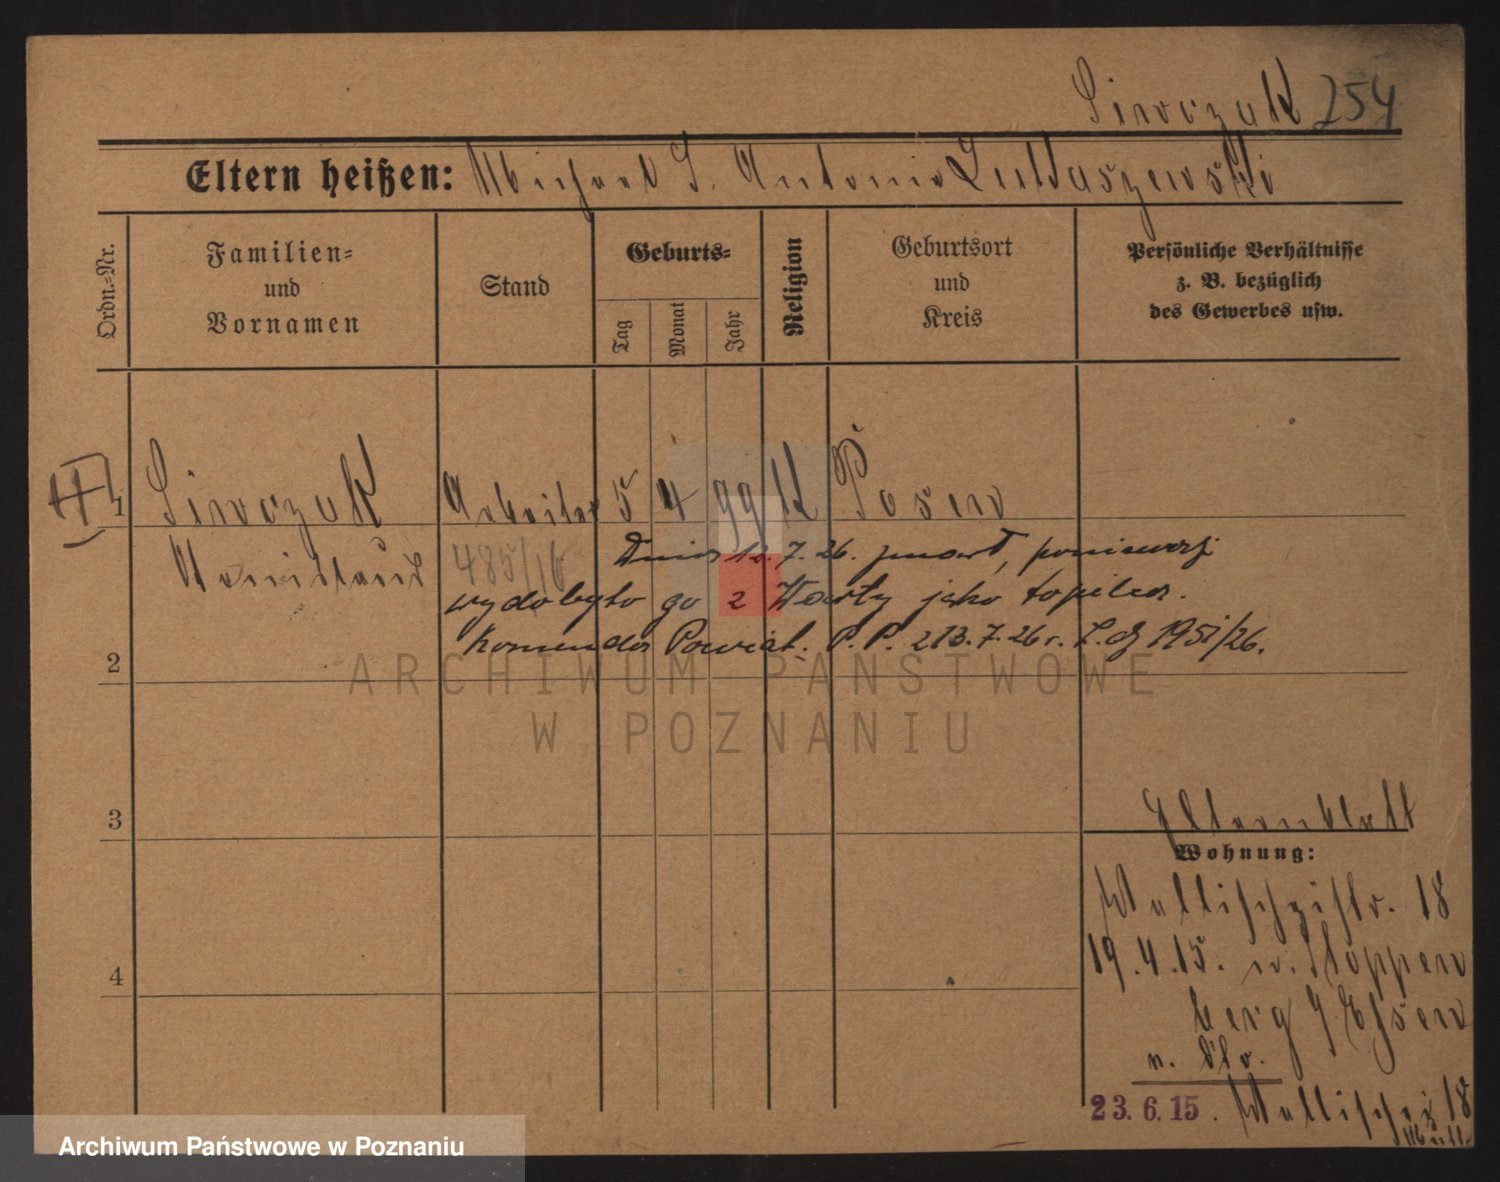 Siwczak 254
Eltern heißen: Michael S. Antonie Lukaszewski
Ordn.=Nr.
Familien=
und
Vornamen
Stand
Geburts=
Tag
Monat
Jahr
Religion
Geburtsort
und
Kreis
Persönliche Verhältnisse
z. B. bezüglich
des Gewerbes usw.
1
Siwczak Arbeiter 5 4 99 K Posen
485/16
Dnia 12.7.26. zmarł, ponieważ
wydobyto go z Warty jako topielca.
Komenda Powiat. P. P. z 13.7.26 r. L. dz 1951/26.
2
ARCHIWUM PAŃSTWOWE
W POZNANIU
3
4
Elternblatt
Wohnung:
Wallischeistr. 18
19.4.15. n. Stoppen
berg Essen
23.6.15. Wallischei 18
Archiwum Państwowe w Poznaniu